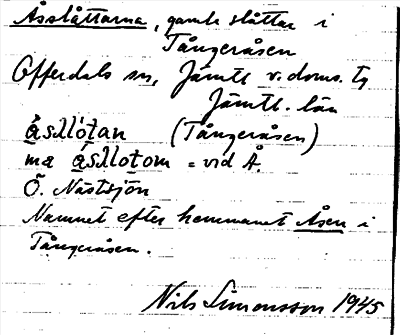 Åsslåttarna, gamla slåttar i
Tångeråsen
Offerdals sn, Jämtl. v. doms. tg
Jämtl. län
ásllòtan (Tångeråsen)
ma ásllotom = vid Å.
Ö. Nästsjön
Namnet efter hemmanet Åsen i
Tångeråsen.
Nils Simonsson 1945